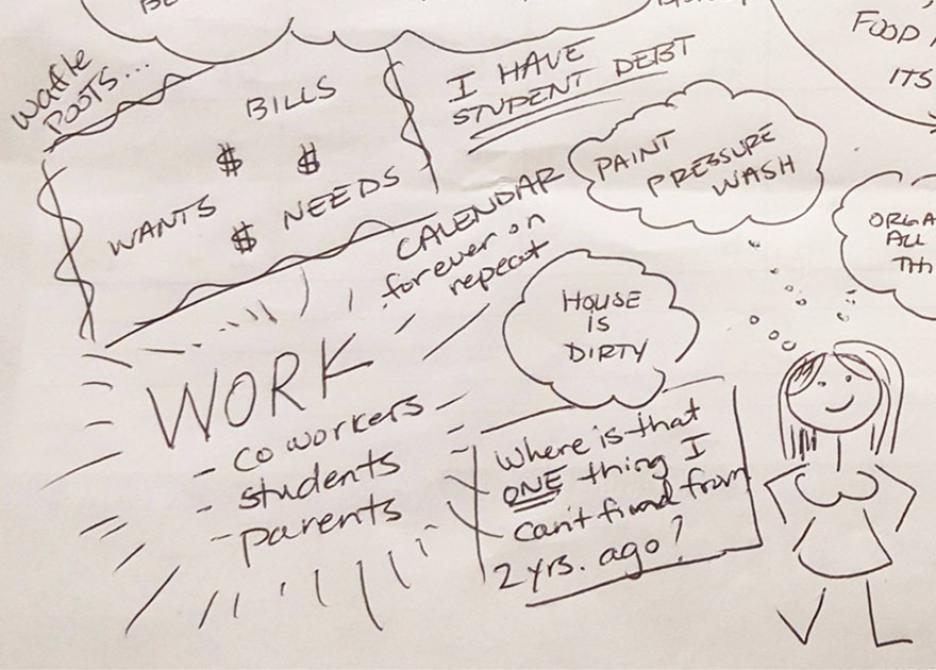 FOOD
ITS
Waffle
POOTS...
BILLS
$ $
WANTS $ NEEDS
I HAVE
STUDENT DEBT
PAINT
PRESSURE
WASH
CALENDAR
forever on
repeat
ORGA
ALL
TH
HOUSE
IS
DIRTY
WORK
- coworkers
- students
- parents
Where is that
ONE thing I
can't find from
2 yrs. ago?